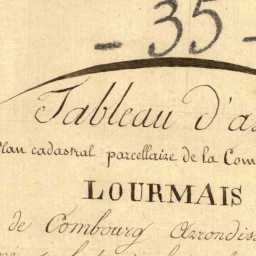 - 35 -
Tableau d'as
Plan cadastral parcellaire de la Com
LOURMAIS
de Combourg Arrondiss